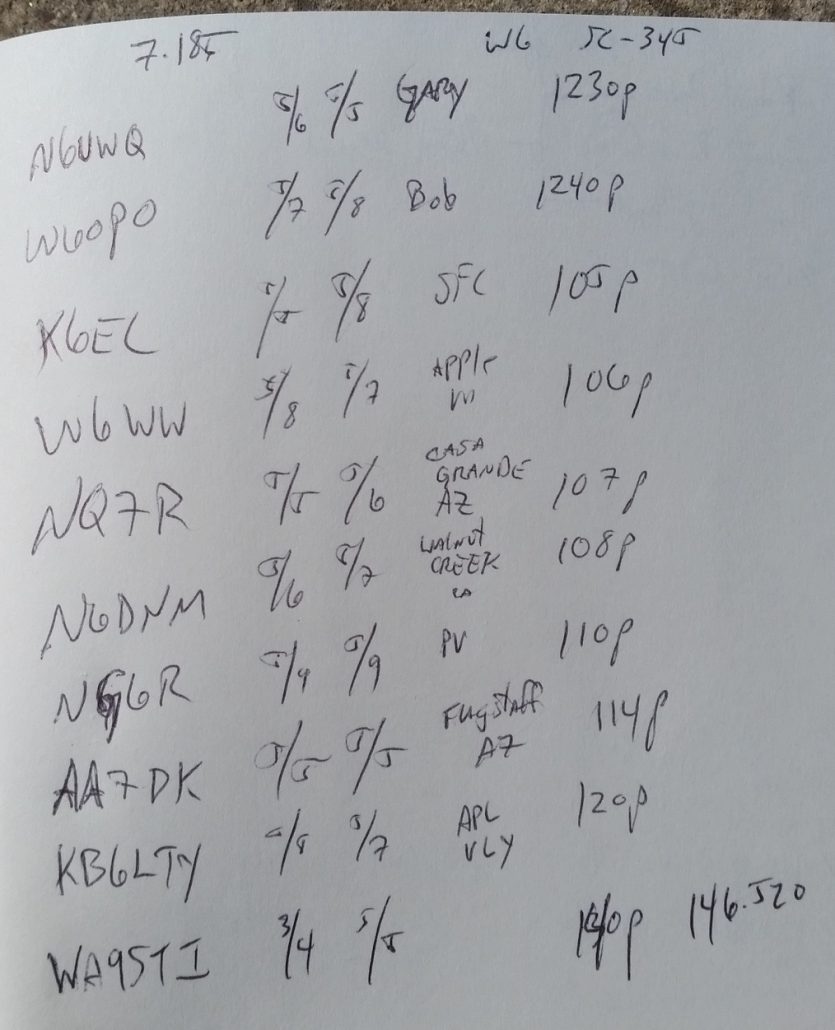 7.185 W6 SC-345
N6UWQ 5/6 5/5 GARY 1230p
W6OPO 5/7 5/8 Bob 1240p
K6EL 5/5 5/8 SFC 105p
W6WW 5/8 5/7 Apple 106p
NQ7R 5/5 5/6 CASA GRANDE AZ 107p
N6DNM 5/6 5/7 WALNUT CREEK CA 108p
NG6R 5/9 5/9 PV 110p
AA7DK 5/5 5/5 Flagstaff AZ 114p
KB6LTY 5/7 APL VLY 120p
WA9STI 3/4 5/5 146.520